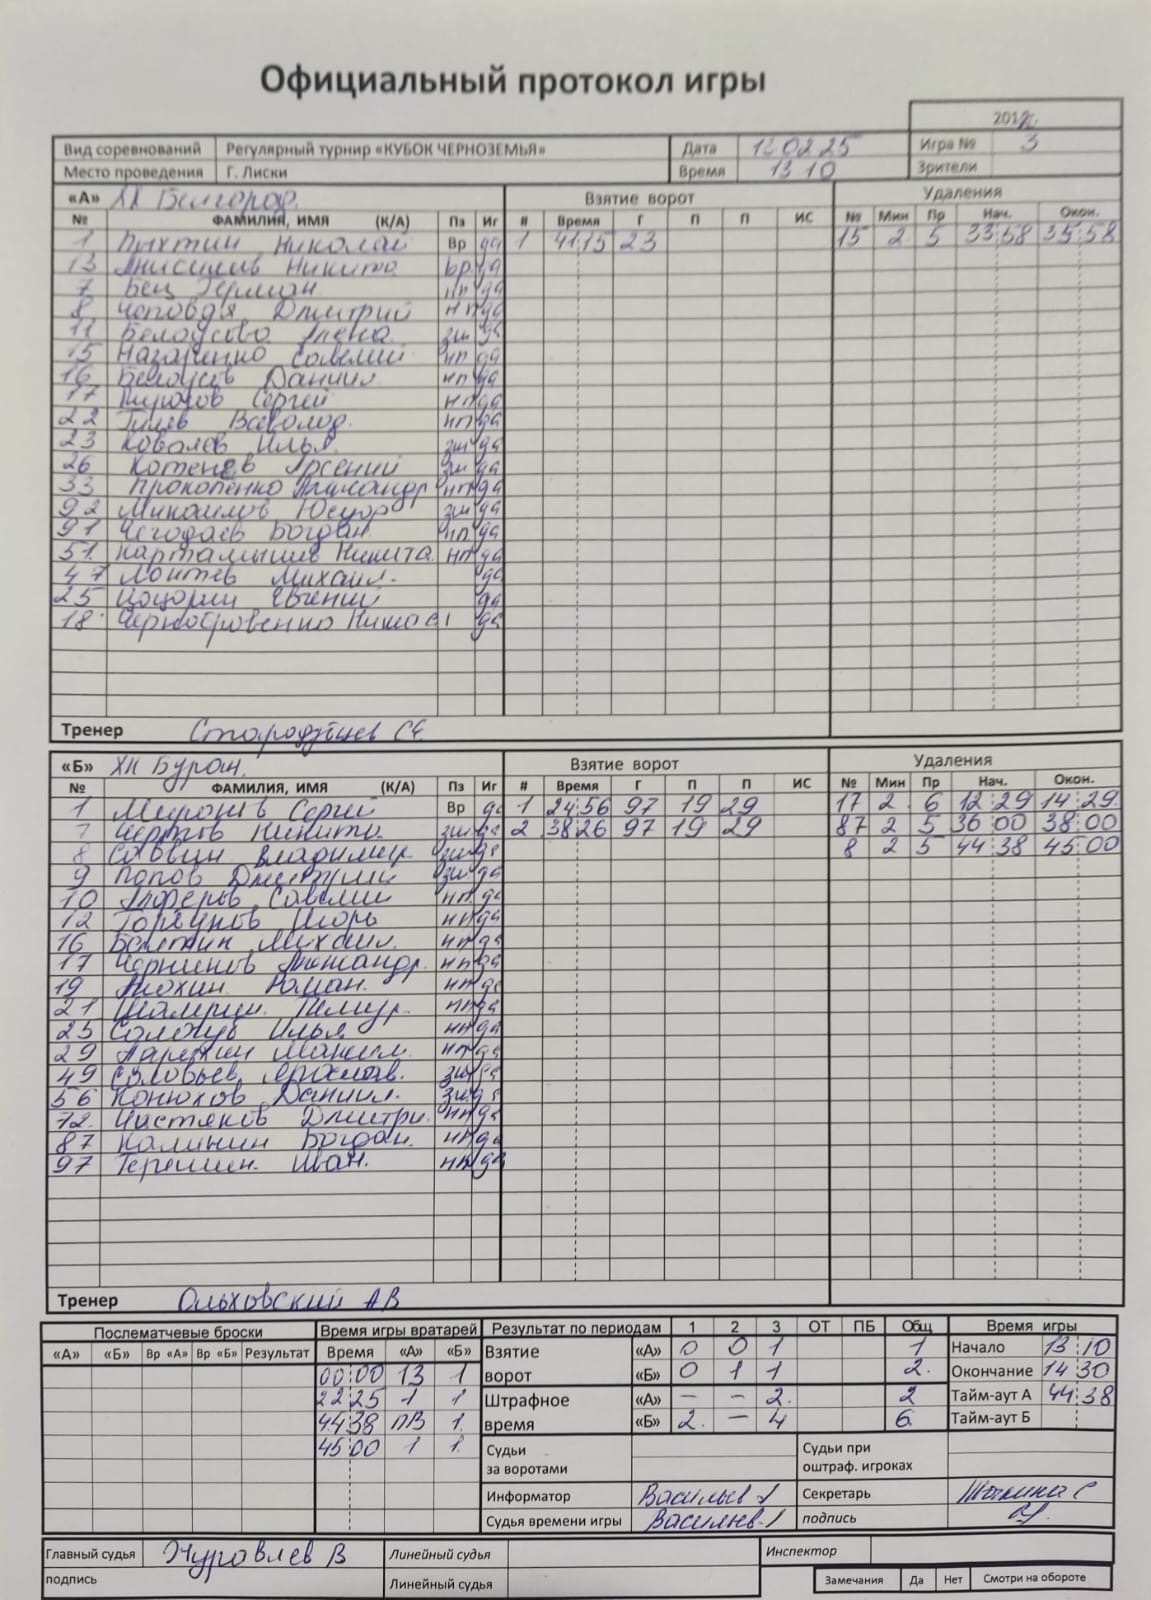 Официальный протокол игры
201
Вид соревнований Регулярный турнир «КУБОК ЧЕРНОЗЕМЬЯ» Дата 02 25 Игра № 3
Место проведения Г. Лиски Время 13 10 Зрители
«А» ХК Белгород Взятие ворот Удаления
№ ФАМИЛИЯ, ИМЯ (К/А) Пз Иг # Время Г П П ИС № Мин Пр Нач. Окон.
1 Пыхтин Николай Вр да 1 41 15 23 15 2 5 33 58 35 58
13 Анисимов Никита вр да
7 Бец Герман нп да
8 Чеповая Дмитрий нп да
11 Белоусова Алена зщ да
15 Назаренко Савелий нп да
16 Белоусов Даниил нп да
17 Сергей нп да
22 Всеволод нп да
23 Ковалев Илья зщ да
26 Котенев Арсений зщ да
33 Прокопенко Александр нп да
92 Михайлов зщ да
91 Чегодаев Богдан нп да
51. Карталышев Никита нп да
47 Лоптев Михаил. да
25 Евгений да
18. да
Тренер Стародубцев СЕ
«Б» ХК Буран Взятие ворот Удаления
№ ФАМИЛИЯ, ИМЯ (К/А) Пз Иг # Время Г П П ИС № Мин Пр Нач. Окон.
1 Сергей Вр да 1 24 56 97 19 29 17 2 6 12 29 14 29
7 Чертов Никита зщ да 2 38 26 97 19 29 87 2 5 36 00 38 00
8 Саввин Владимир зщ да 8 2 5 44 38 45 00
9 Попов Дмитрий зщ да
10 Алферов Савелий нп да
12 Горбунов Игорь нп да
16 Михаил. нп да
17 Александр. нп да
19 Анохин Роман. нп да
21 Тимур. нп да
25 Сологуб Илья нп да
29 Максим. нп да
49 Соловьев Ярослав. зщ да
56 Конюхов Даниил. зщ да
72. Чистяков Дмитри. нп да
87 Калинин Богдан. нп да
97 Терешин. Иван. нп да
Тренер Ольховский АВ
Послематчевые броски Время игры вратарей Результат по периодам 1 2 3 ОТ ПБ Общ Время игры
«А» «Б» Вр «А» Вр «Б» Результат Время «А» «Б» Взятие «А» 0 0 1 1 Начало 13 10
00 00 13 1 ворот «Б» 0 1 1 2. Окончание 14 30
22 25 1 1 Штрафное «А» – – 2. 2 Тайм-аут А 44 38
44 38 ПВ 1. время «Б» 2. – 4 6 Тайм-аут Б
45 00 1 1. Судьи за воротами Судьи при оштраф. игроках
Информатор Васильев Секретарь
Судья времени игры Васильев подпись
Главный судья Журавлев В Линейный судья Инспектор
подпись Линейный судья Замечания Да Нет Смотри на обороте